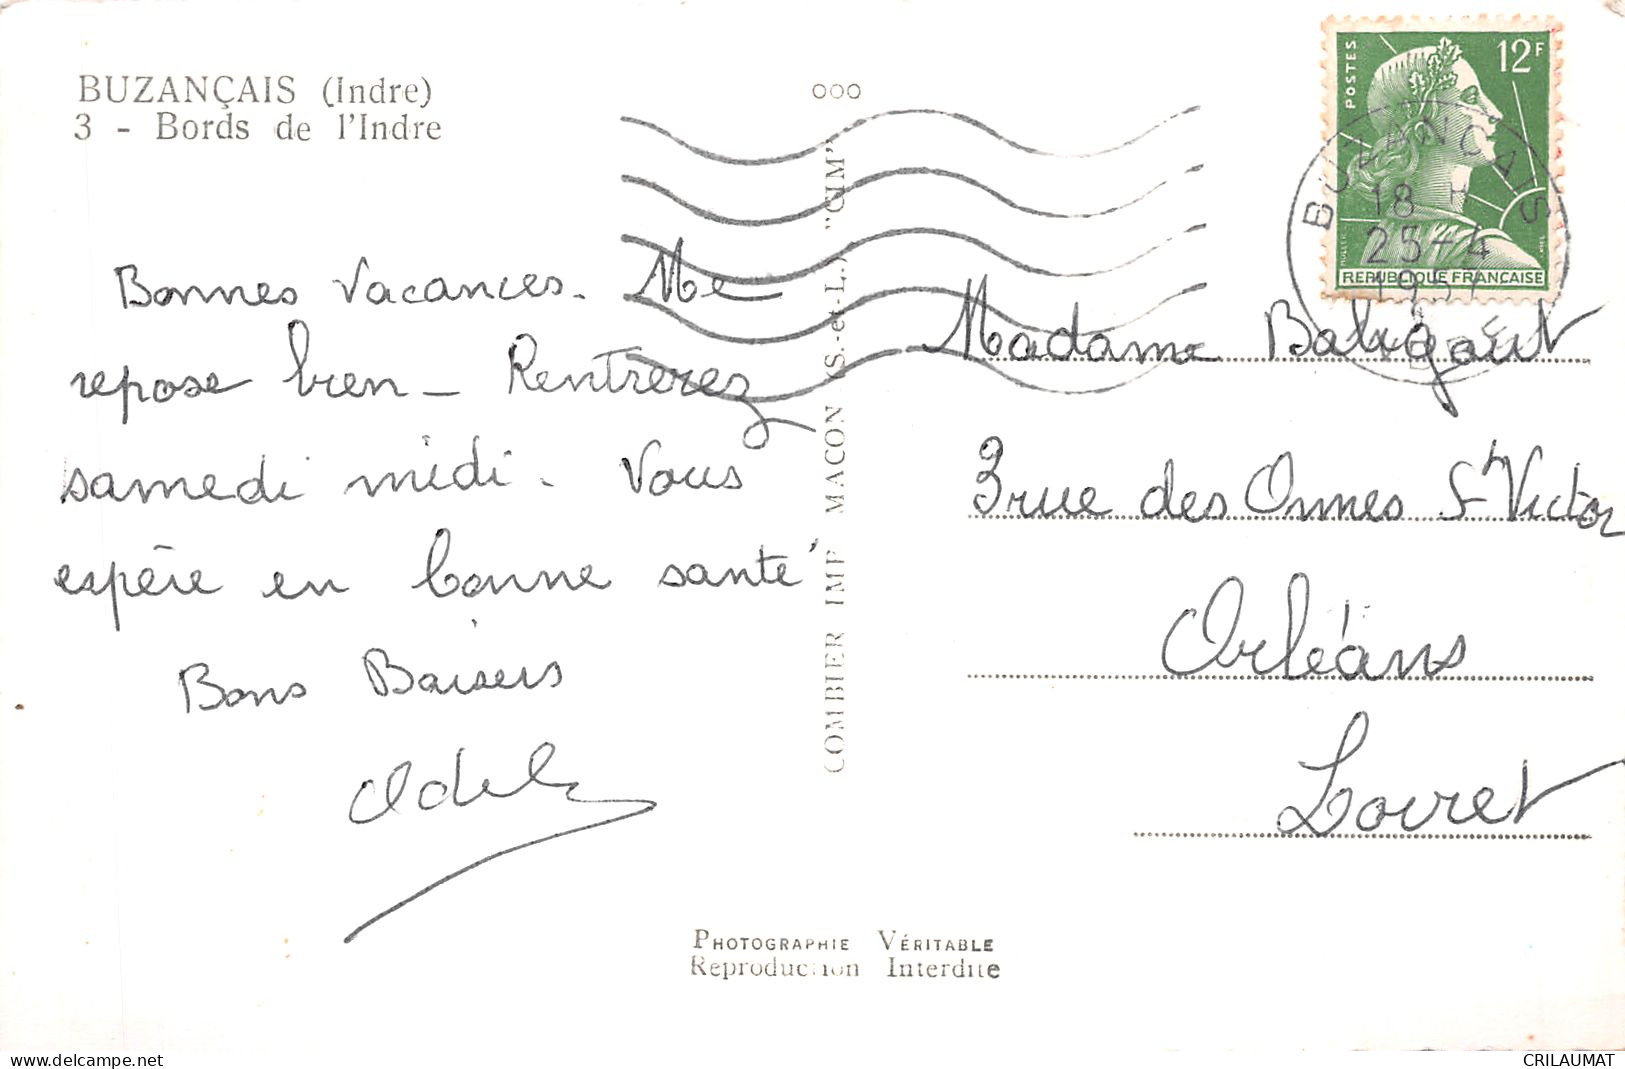 BUZANÇAIS (Indre)
3 - Bords de l'Indre
Bonnes Vacances. Me
repose bien - Rentrerez
samedi midi. Vous
espère en bonne santé
Bons Baisers
Adel
COMBIER IMP MACON (S.-et-L.) "CIM"
ooo
POSTES
12F
REPUBLIQUE FRANÇAISE
BUZANCAIS
18 H
25-4
1957
Madame
3 rue des Ormes St Victor
Orléans
Loiret
PHOTOGRAPHIE VÉRITABLE
Reproduction Interdite
www.delcampe.net
CRILAUMAT